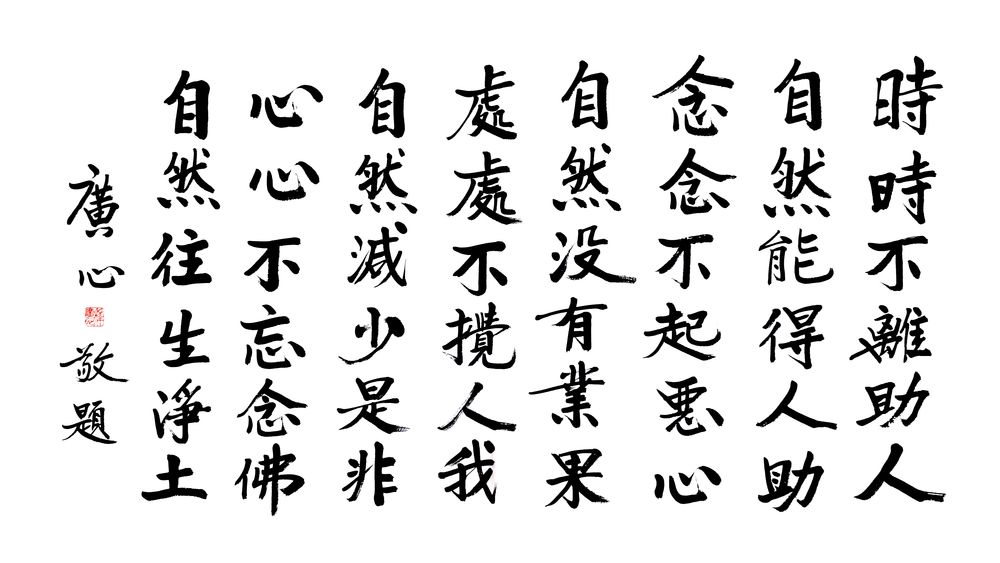 時時不離助人
自然能得人助
念念不起悪心
自然没有業果
處處不攪人我
自然減少是非
心心不忘念佛
自然往生淨土
廣心敬題